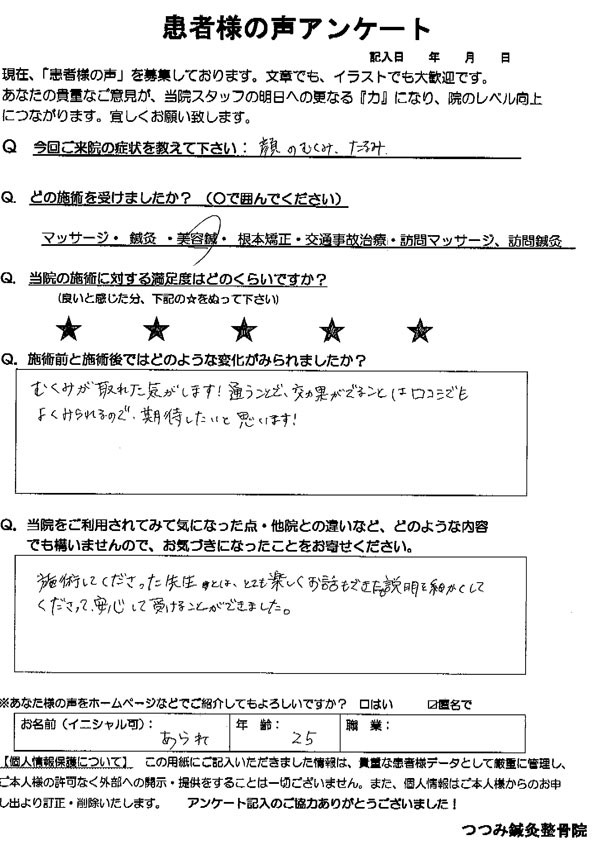 患者様の声アンケート
記入日　年　月　日
現在、「患者様の声」を募集しております。文章でも、イラストでも大歓迎です。
あなたの貴重なご意見が、当院スタッフの明日への更なる『力』になり、院のレベル向上
につながります。宜しくお願い致します。
Q 今回ご来院の症状を教えて下さい： 顔のむくみ、たるみ
Q. どの施術を受けましたか？（〇で囲んでください）
マッサージ・ 鍼灸 ・美容鍼・ 根本矯正・交通事故治療・訪問マッサージ、訪問鍼灸
Q. 当院の施術に対する満足度はどのくらいですか？
（良いと感じた分、下記の☆をぬって下さい）
★ ★ ★ ★ ★
Q. 施術前と施術後ではどのような変化がみられましたか？
むくみが取れた気がします！通うことで、効果がでることは口コミでも
よくみられるので、期待したいと思います！
Q. 当院をご利用されてみて気になった点・他院との違いなど、どのような内容
でも構いませんので、お気づきになったことをお寄せください。
施術してくださった先生とは、とても楽しくお話もでき説明も細かくして
くださって、安心して受けることができました。
※あなた様の声をホームページなどでご紹介してもよろしいですか？ □はい ☑匿名で
お名前（イニシャル可）： あられ 年 齢： 25 職 業：
【個人情報保護について】 この用紙にご記入いただきました情報は、貴重な患者様データとして厳重に管理し、
ご本人様の許可なく外部への開示・提供をすることは一切ございません。また、個人情報はご本人様からのお申
し出より訂正・削除いたします。 アンケート記入のご協力ありがとうございました！
つつみ鍼灸整骨院